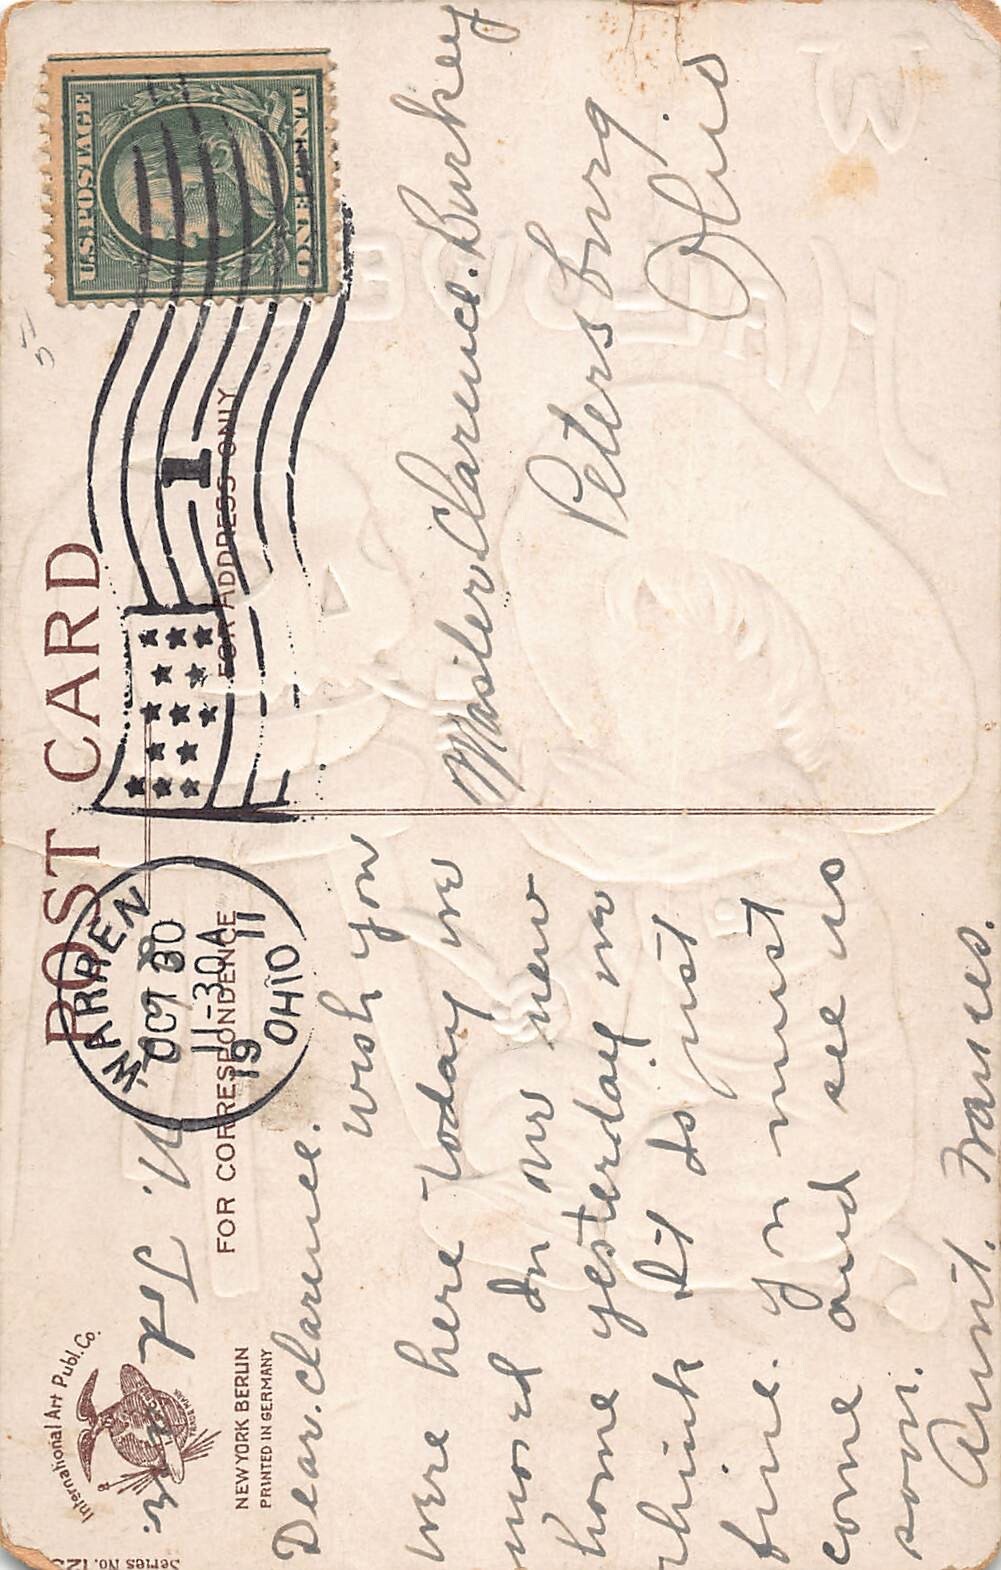 Series No. 123
International Art Publ. Co.
TRADE MARK
NEW YORK BERLIN
PRINTED IN GERMANY
POST CARD
FOR CORRESPONDENCE
FOR ADDRESS ONLY
WARREN
OCT 30
11-30A
19 11
OHIO
1
U.S. POSTAGE
ONE CENT
Dear. clarence.
wish you
were here today we
moved In our new
home yesterday we
think It Is just
fine. you must
come and see us
soon.
Aunt. Frances.
Master Clarence. Burkey
Petersburg
Ohio